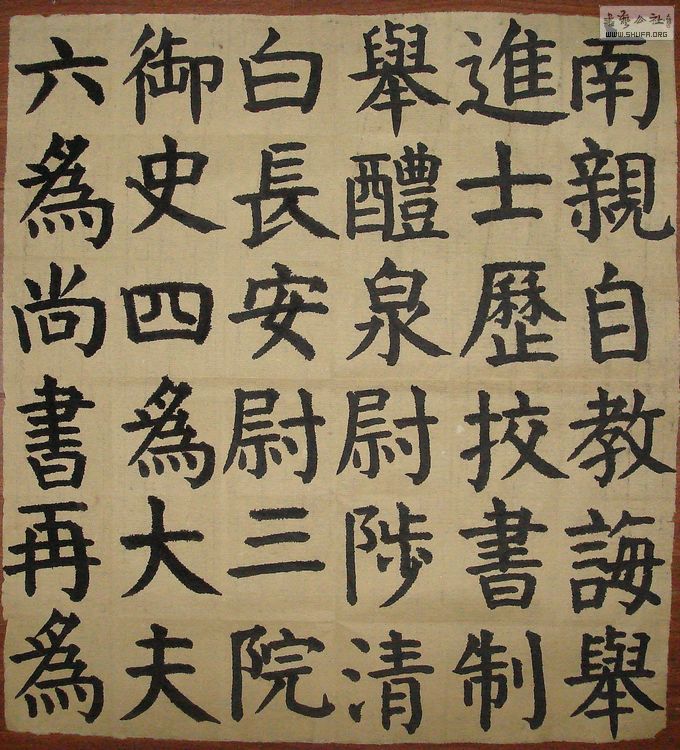 南親自教誨舉
進士歷挍書制
舉醴泉尉陟清
白長安尉三院
御史四為大夫
六為尚書再為
书艺公社
WWW.SHUFA.ORG